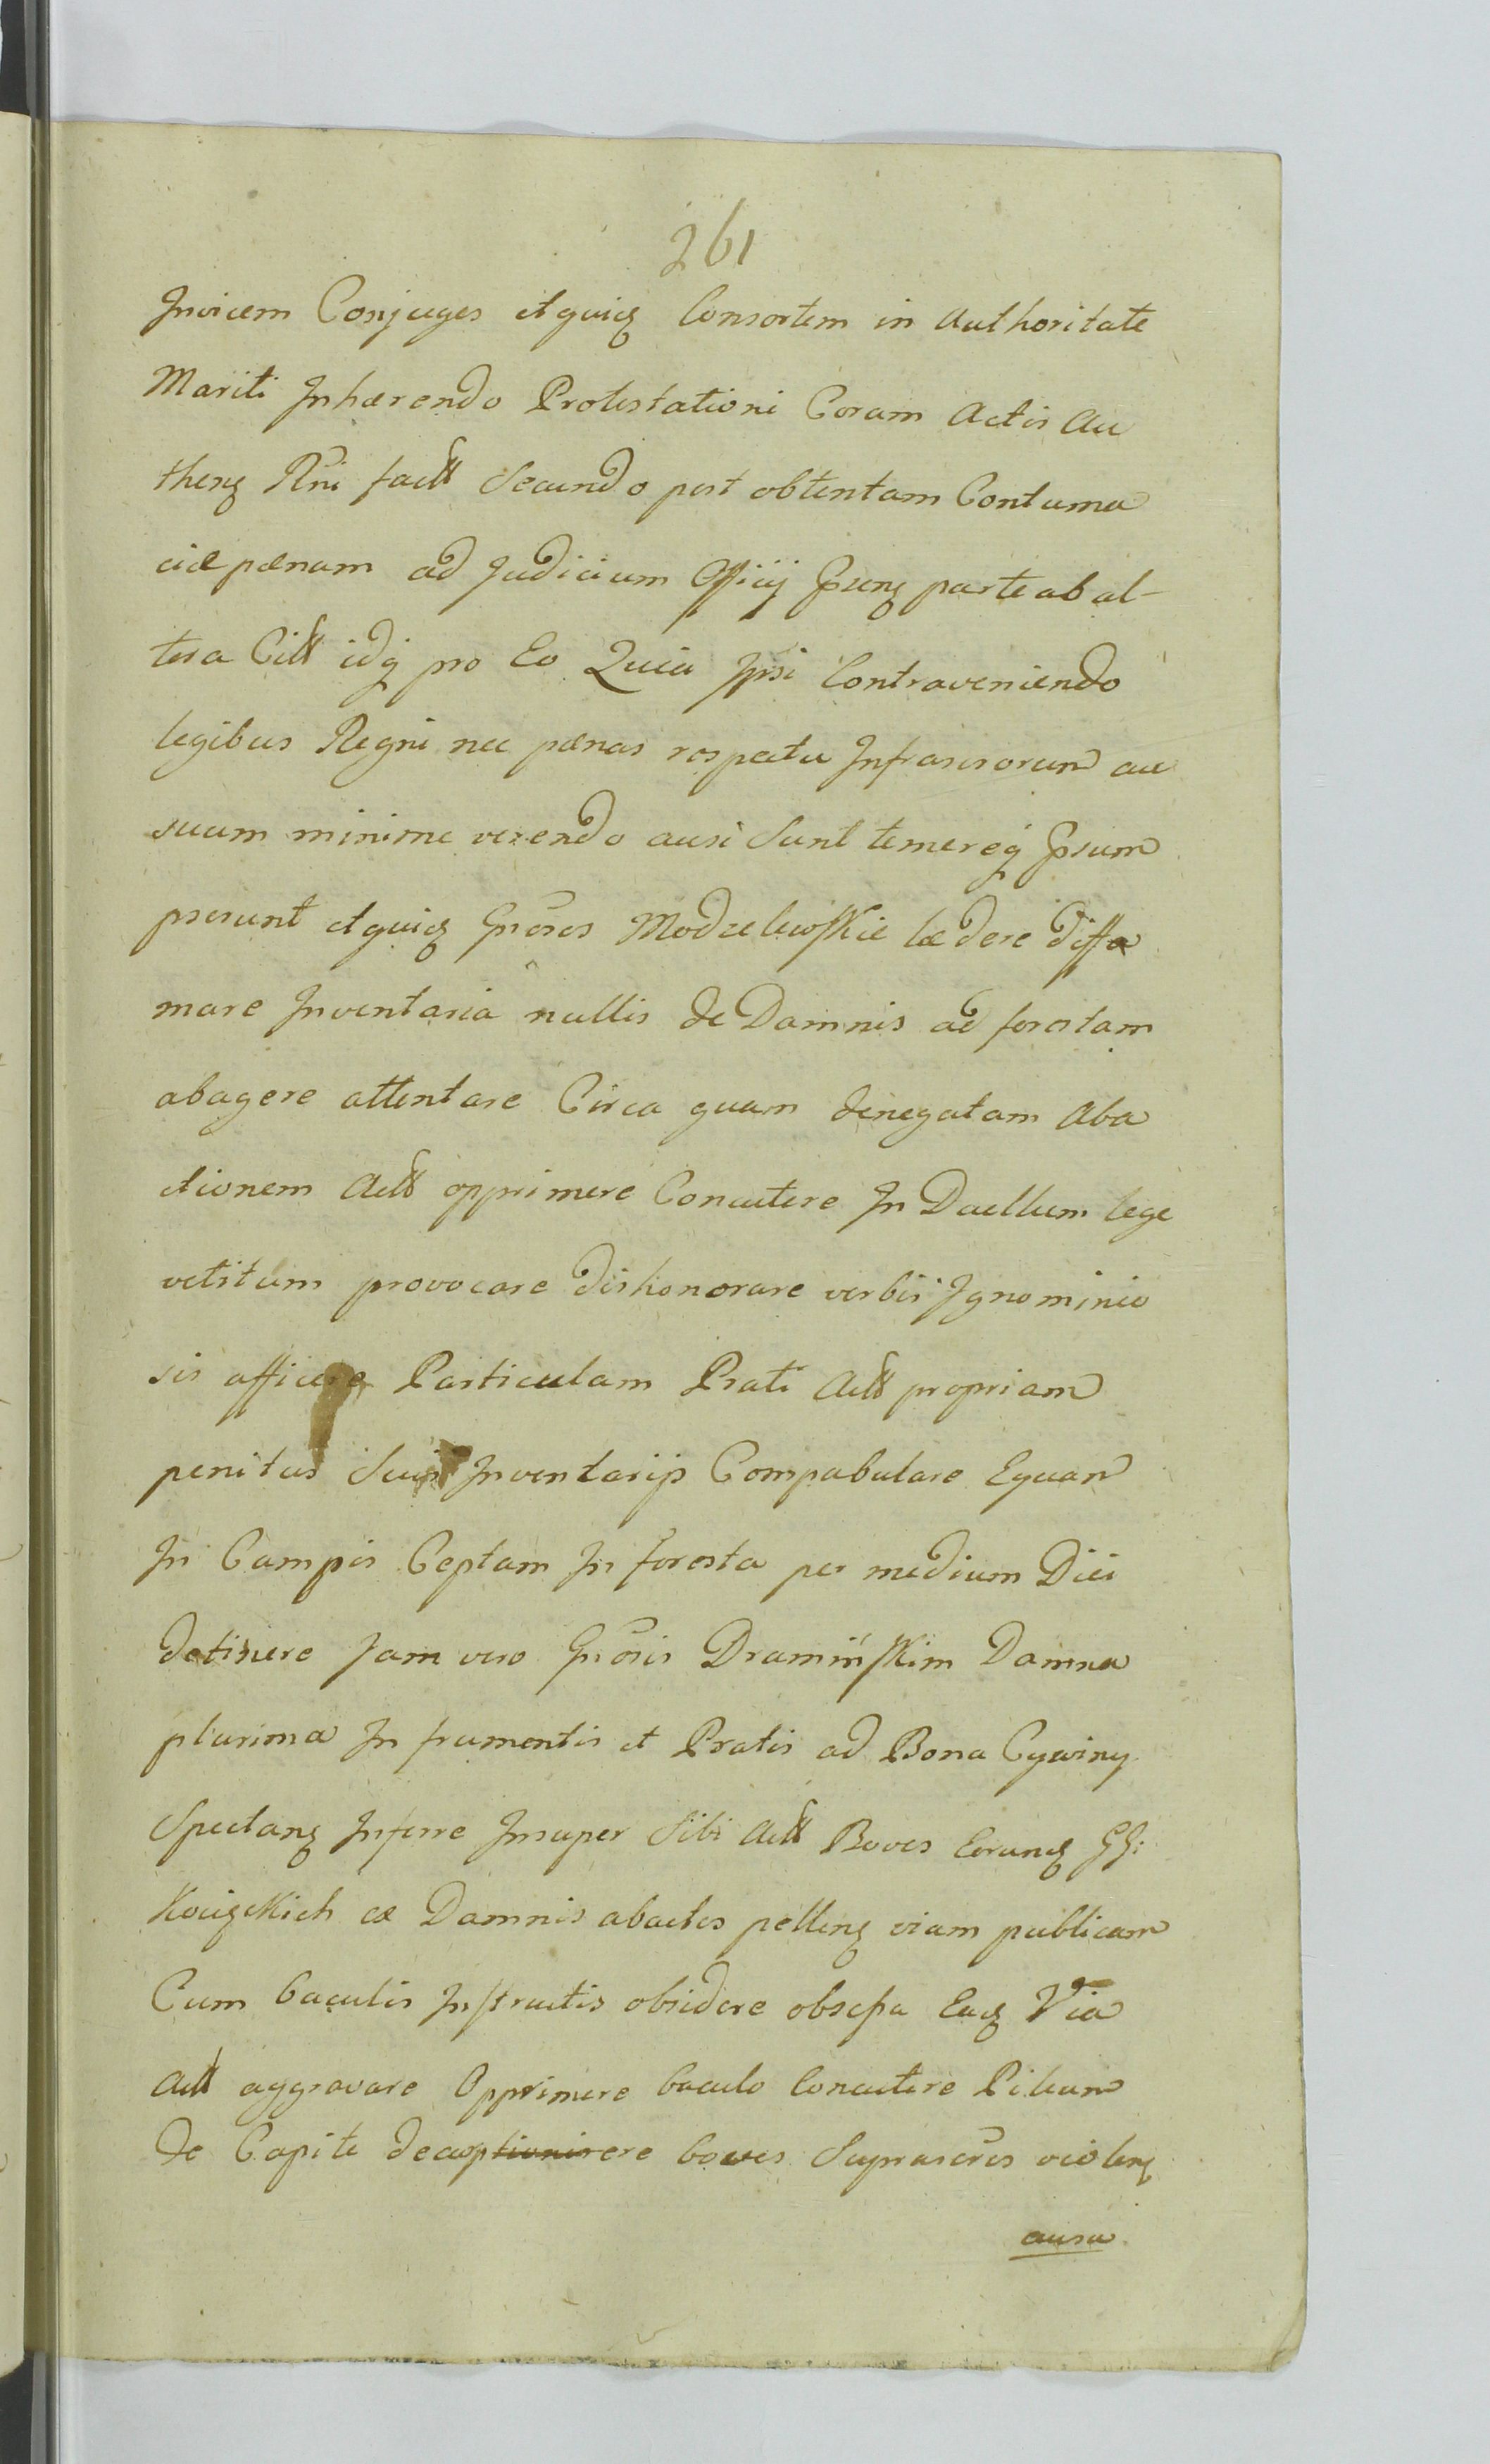 261
Invicem Conjuges etquicq Consortem in Authoritate
Mariti Inhærendo Protestationi Coram Actis Au
thenq Rni factt Secundo post obtentam Contuma
ciæ pænam ad Judicium Officij Prænq parte ab al-
tera Citt idq pro Eo Quia Ipsi Contraveniendo
legibus Regni nec pænas respectu Infrascrorum au
suum minime verendo ausi Sunt temereq Ipsum
pserunt etquicq Gnrosos Modzelewskie lædere diffa
mare Inventaria nullis de Damnis ad forestam
abagere attentare Circa quam denegatam Aba
ctionem Actt opprimere Concutere In Duellum lege
vetitum provocare dishonorare verbis Ignominio
sis afficere Particulam Prati Actt propriam
penitus Suis Inventarijs Compabulare Equam
In Campis Ceptam In foresta per medium Diei
detinere Jam vero Gnrosis Dramińskim Damna
plurima In frumentis et Pratis ad Bona Cywiny
Spectanq Inferre Insuper Sibi Actt Boves Eorundq GG:
ex Damnis abactos pellenq viam publicam
Cum baculis Instructis obsidere obsessa Eadq Via
Actt aggravare Opprimere baculo Concutere Pileum
de Capite decuptionirere boves Suprascros violenq
ausu